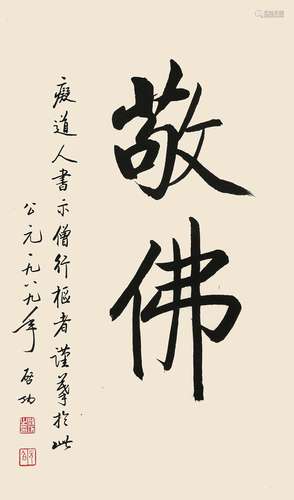 敬佛
癡道人書示僧行樞者謹摹於此
公元一九八九年 启功